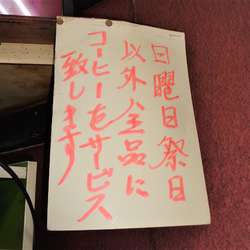 日曜日祭日
以外全品に
コーヒーをサービス
致します